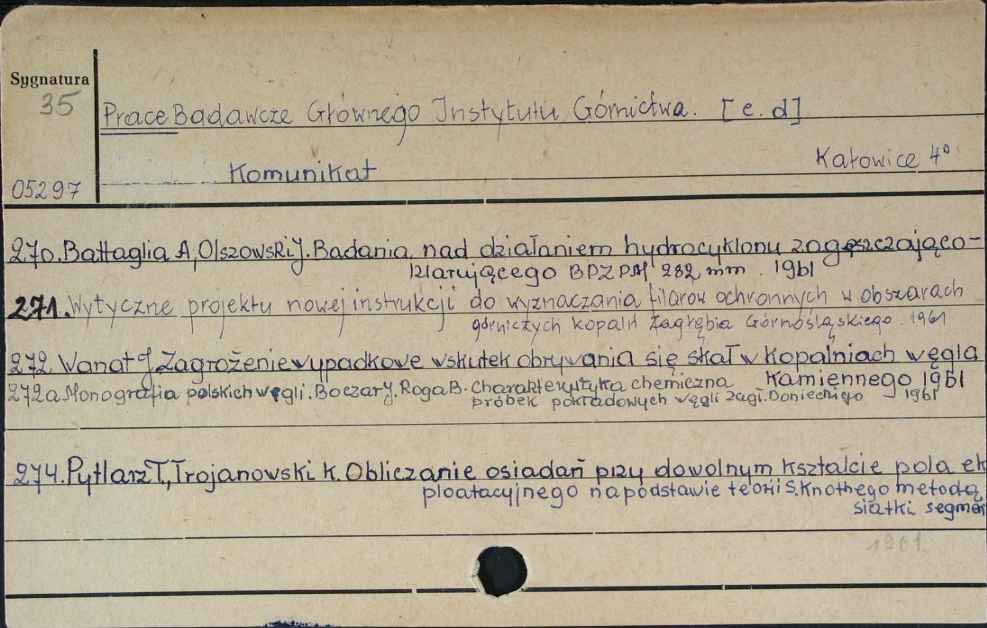 Sygnatura
35
Prace Badawcze Głównego Instytutu Górnictwa. [c.d]
Komunikat Katowice 4°
05297
270. Battaglia A, Olszowski J. Badania nad działaniem hydrocyklonu zagęszczająco-
klarującego BPZPM 282 mm. 1961
271. Wytyczne projektu nowej instrukcji do wyznaczania filarów ochronnych w obszarach
górniczych kopalń Zagłębia Górnośląskiego. 1961
272 Vanat J. Zagrożenie wypadkowe wskutek obrywania się skał w kopalniach węgla
Kamiennego 1961
272a Monografia polskich węgli. Boczar J. Roga B. Charakterystyka chemiczna
próbek pokładowych węgli zagł. Donieckiego 1961
274. Pytlarz T, Trojanowski K. Obliczanie osiadań przy dowolnym kształcie pola ek
ploatacyjnego na podstawie teorii S. Knothego metodą
siatki segmen
1961.